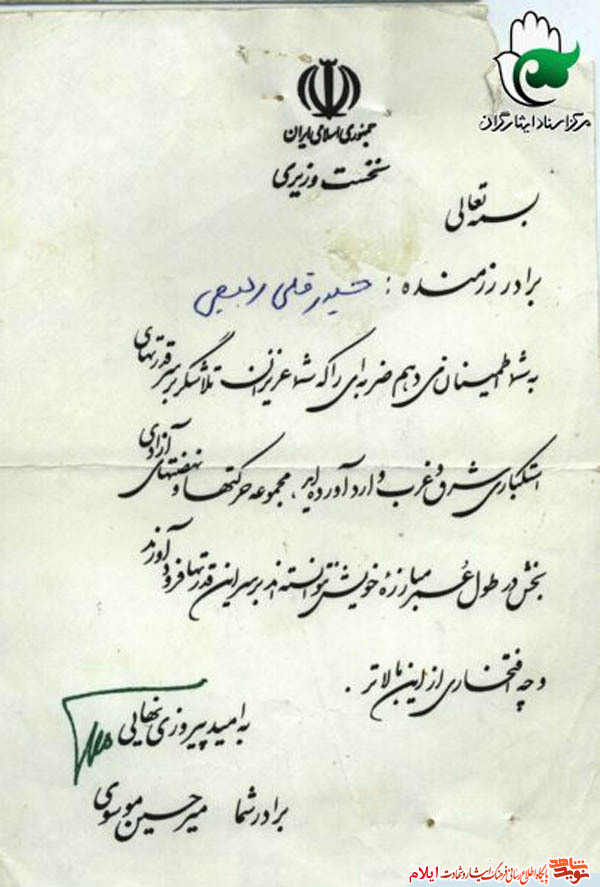 مرکز اسناد ایثارگران
جمهوری اسلامی ایران
نخست وزیری
بسمه تعالی
برادر رزمنده : حیدر قلی ربیعی
به شما اطمینان می دهم ضربه ای را که شما عزیزان تلاشگر بر سر قدرتهای
استکباری شرق و غرب وارد آورده اید، مجموعه حرکتها و نهضتهای آزادی
بخش در طول عمر مبارزه خویش نتوانسته اند بر سر این قدرتها فرود آورند
و چه افتخاری از این بالاتر .
به امید پیروزی نهایی
برادر شما میرحسین موسوی
نوید شاهد پایگاه اطلاع رسانی فرهنگ ایثار و شهادت ایلام